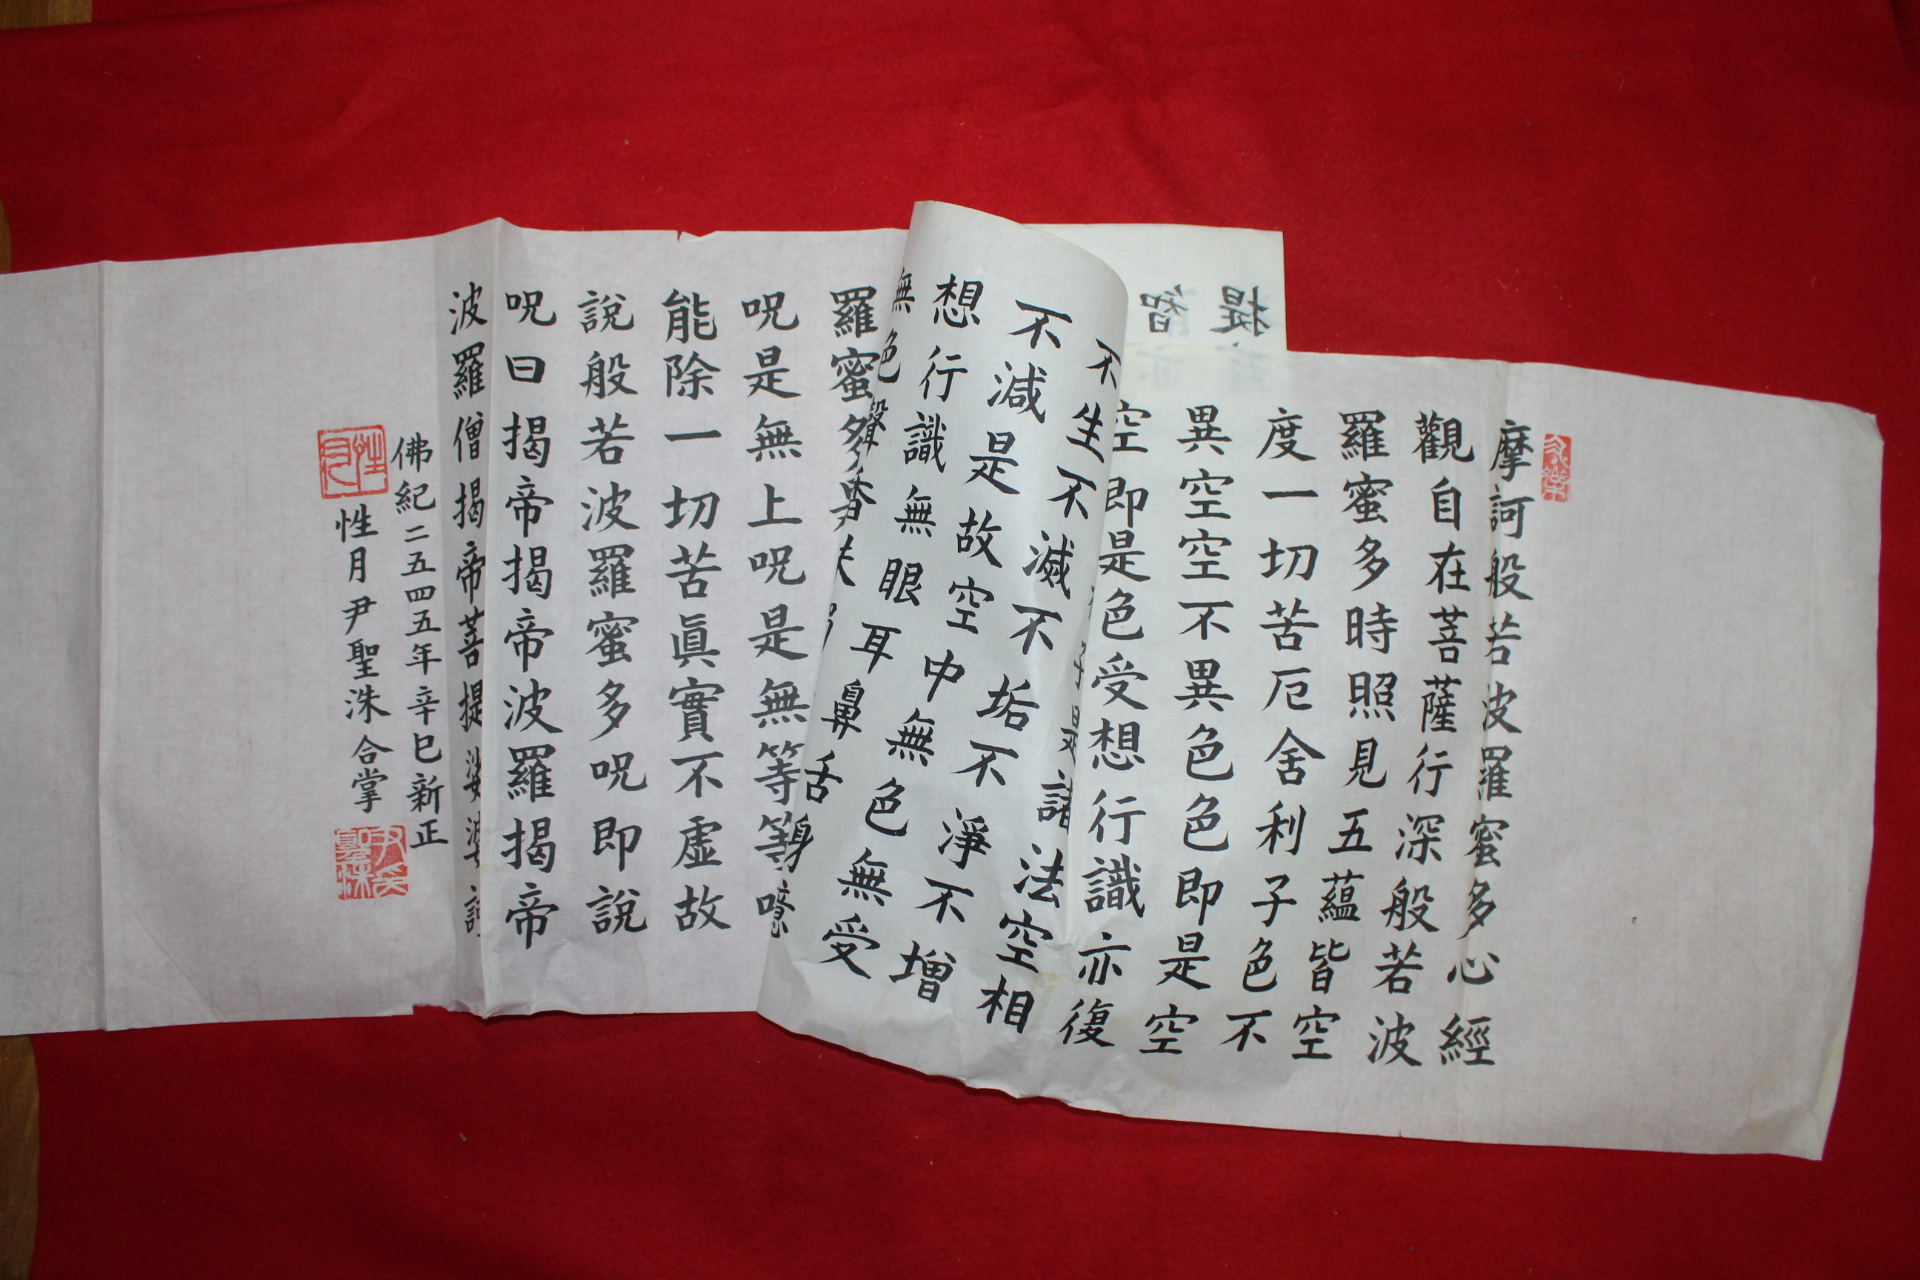 摩訶般若波羅蜜多心經
觀自在菩薩行深般若波
羅蜜多時照見五蘊皆空
度一切苦厄舍利子色不
異空空不異色色即是空
空即是色受想行識亦復
子是諸法空相
不生不滅不垢不淨不增
不減是故空中無色無受
想行識無眼耳鼻舌身
無色聲香
羅蜜多
呪是無上呪是無等等
能除一切苦眞實不虛故
說般若波羅蜜多呪即說
呪曰揭帝揭帝波羅揭帝
波羅僧揭帝菩提娑婆訶
佛紀二五四五年辛巳新正
性月尹聖洙合掌
提
智